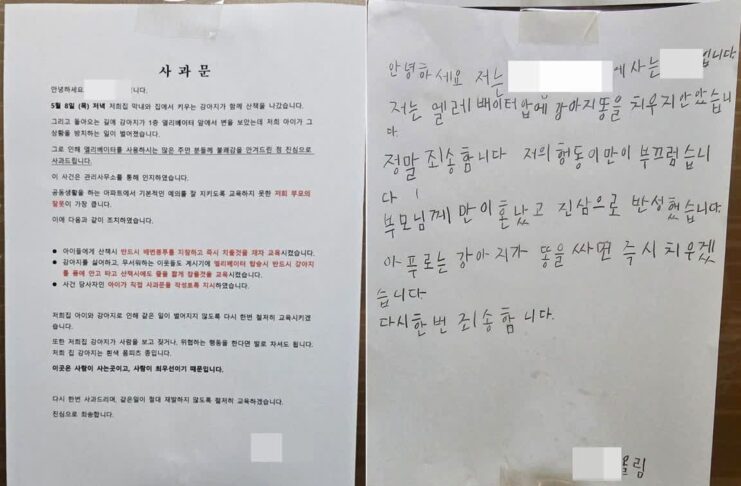 사 과 문
안녕하세요. 입니다.
5월 8일 (목) 저녁 저희집 막내와 집에서 키우는 강아지가 함께 산책을 나갔습니다.
그리고 돌아오는 길에 강아지가 1층 엘리베이터 앞에서 변을 보았는데 저희 아이가 그
상황을 방치하는 일이 벌어졌습니다.
그로 인해 엘리베이터를 사용하시는 많은 주민 분들께 불쾌감을 안겨드린 점 진심으로
사과드립니다.
이 사건은 관리사무소를 통해 인지하였습니다.
공동생활을 하는 아파트에서 기본적인 예의를 잘 지키도록 교육하지 못한 저희 부모의
잘못이 가장 큽니다.
이에 다음과 같이 조치하였습니다.
● 아이들에게 산책시 반드시 배변봉투를 지참하고 즉시 치울것을 재차 교육시켰습니다.
● 강아지를 싫어하고, 무서워하는 이웃들도 계시기에 엘리베이터 탑승시 반드시 강아지
를 품에 안고 타고 산책시에도 줄을 짧게 잡을것을 교육시켰습니다.
● 사건 당사자인 아이가 직접 사과문을 작성토록 지시하였습니다.
저희집 아이와 강아지로 인해 같은 일이 벌어지지 않도록 다시 한번 철저히 교육시키겠
습니다.
또한 저희집 강아지가 사람을 보고 짖거나, 위협하는 행동을 한다면 발로 차셔도 됩니다.
저희 집 강아지는 흰색 폼피츠 종입니다.
이곳은 사람이 사는곳이고, 사람이 최우선이기 때문입니다.
다시 한번 사과드리며, 같은일이 절대 재발하지 않도록 철저히 교육하겠습니다.
진심으로 죄송합니다.
안녕하세요 저는 에 사는 입니다.
저는 엘레베이터 앞에 강아지똥을 치우지 안았습니
다
정말 죄송합니다 저의 행동이 만이 부끄럽습니
다
부모님께 만이 혼났고 진심으로 반성했습니다.
아푸로는 강아지가 똥을 싸면 즉시 치우겠
습니다.
다시한번 죄송합니다.
올림